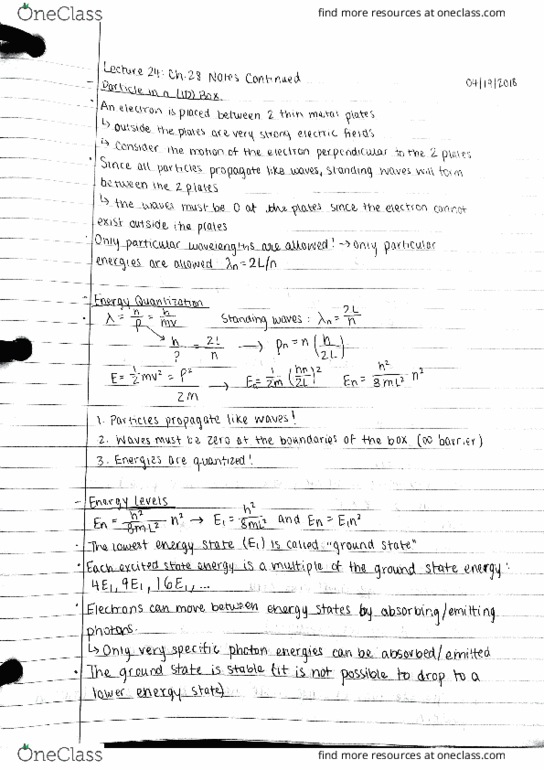 OneClass
find more resources at oneclass.com
Lecture 24: Ch.28 Notes Continued
04/19/2018
Particle in a (1D) Box.
· An electron is placed between 2 thin metal plates
↳ outside the plates are very strong electric fields
↳ Consider the motion of the electron perpendicular to the 2 plates
· Since all particles propagate like waves, standing waves will form
between the 2 plates
↳ the waves must be 0 at the plates since the electron cannot
exist outside the plates
· Only particular wavelengths are allowed! → only particular
energies are allowed λn = 2L/n
- Energy Quantization
· λ = h/p = h/mv Standing waves: λn = 2L/n
h/p = 2L/n → pn = n (h/2L)
E = 1/2 mv² = p²/2m → En = 1/2m (hn/2L)² En = h²/8mL² n²
1. Particles propagate like waves!
2. Waves must be zero at the boundaries of the box (∞ barrier)
3. Energies are quantized!
- Energy Levels
En = h²/8mL² n² → E₁ = h²/8mL² and En = E₁n²
· The lowest energy state (E₁) is called "ground state"
· Each excited state energy is a multiple of the ground state energy:
4E₁, 9E₁, 16E₁, ...
· Electrons can move between energy states by absorbing/emitting
photons.
↳ Only very specific photon energies can be absorbed/emitted
· The ground state is stable (it is not possible to drop to a
lower energy state)
OneClass
find more resources at oneclass.com